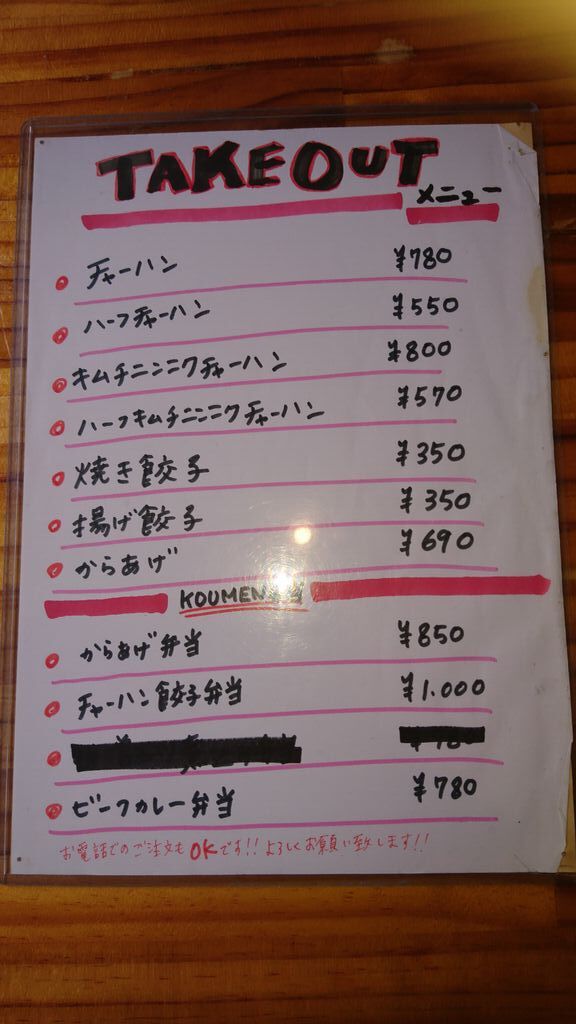 TAKEOUT
メニュー
チャーハン ¥780
ハーフチャーハン ¥550
キムチニンニクチャーハン ¥800
ハーフキムチニンニクチャーハン ¥570
焼き餃子 ¥350
揚げ餃子 ¥350
からあげ ¥690
KOUMEN
からあげ弁当 ¥850
チャーハン餃子弁当 ¥1.000
ビーフカレー弁当 ¥780
お電話でのご注文もOKです!! よろしくお願い致します!!